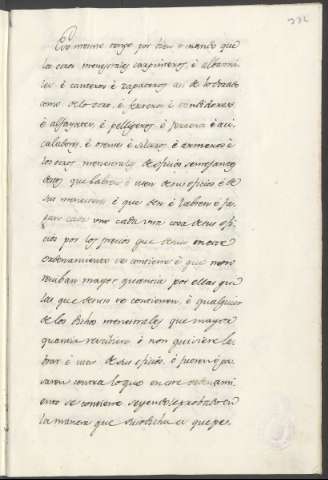 332
Otro mesmo tengo por bien e mando que
los otros menestrales carpinteros è albañi
les è canteros è zapateros asi de lo dorado
como de lo otro, è ferreros è fundidores
è alfayates, è pellijeros è freneros è aci
caladores, è orenses è silleros, è armeros è
los otros menestrales de oficios semejantes
destos, que labren è usen de sus oficios è de
sus menesteres è que den è labren è fa
gan cada uno cada una cosa de sus ofi
cios por los precios que de suso en este
ordenamiento se contiene è que non
reciban mayor quantia por ellas que
las que de suso se contienen, è qualquier
de los dichos menestrales que mayor
quantia recibiere è non quisiere la
brar è usar de su oficio, è fueren è pa
saren contra lo que en este ordenami
ento se contiene seyendole probado en
la manera que suso dicha es que pe.